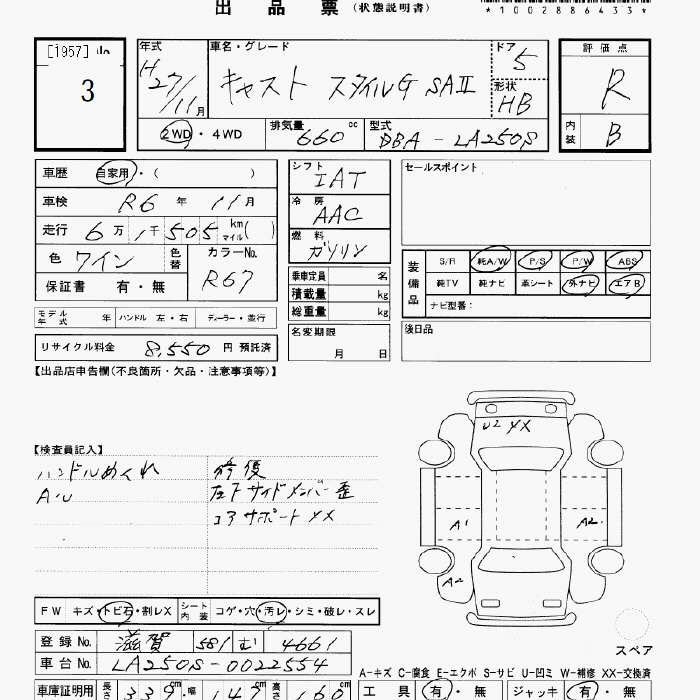 出品票（状態説明書）
*1002886433*
[1957]
3
年式 H27/11月
車名・グレード キャスト スタイルG SAⅡ
ドア 5
形状 HB
評価点 R
内装 B
2WD・4WD
排気量 660cc
型式 DBA-LA250S
車歴 自家用・( )
車検 R6年11月
走行 6万1千505 km マイル( )
色 ワイン 色替 カラーNo. R67
保証書 有・無
シフト IAT
冷房 AAC
燃料 ガソリン
乗車定員 名
積載量 kg
総重量 kg
名変期限 月 日
セールスポイント
装備品 S/R 純A/W P/S P/W ABS
純TV 純ナビ 革シート 外ナビ エアB
ナビ型番：
後日品
モデル年式 年 ハンドル 左・右 ディーラー・並行
リサイクル料金 8,550円 預託済
【出品店申告欄(不良箇所・欠品・注意事項等)】
【検査員記入】
ハンドルめくれ 修復
左下サイドメンバー歪
コアサポートXX
U2 XX
A1
A2
A2
スペア
FW キズ・トビ石・割レX シート内装 コゲ・穴・汚レ・シミ・破レ・スレ
登録No. 滋賀 581 む 4661
車台No. LA250S-0022554
A-キズ C-腐食 E-エクボ S-サビ U-凹ミ W-補修 XX-交換済
車庫証明用 長さ 339cm 幅 147cm 高さ 160cm
工具 有・無 ジャッキ 有・無